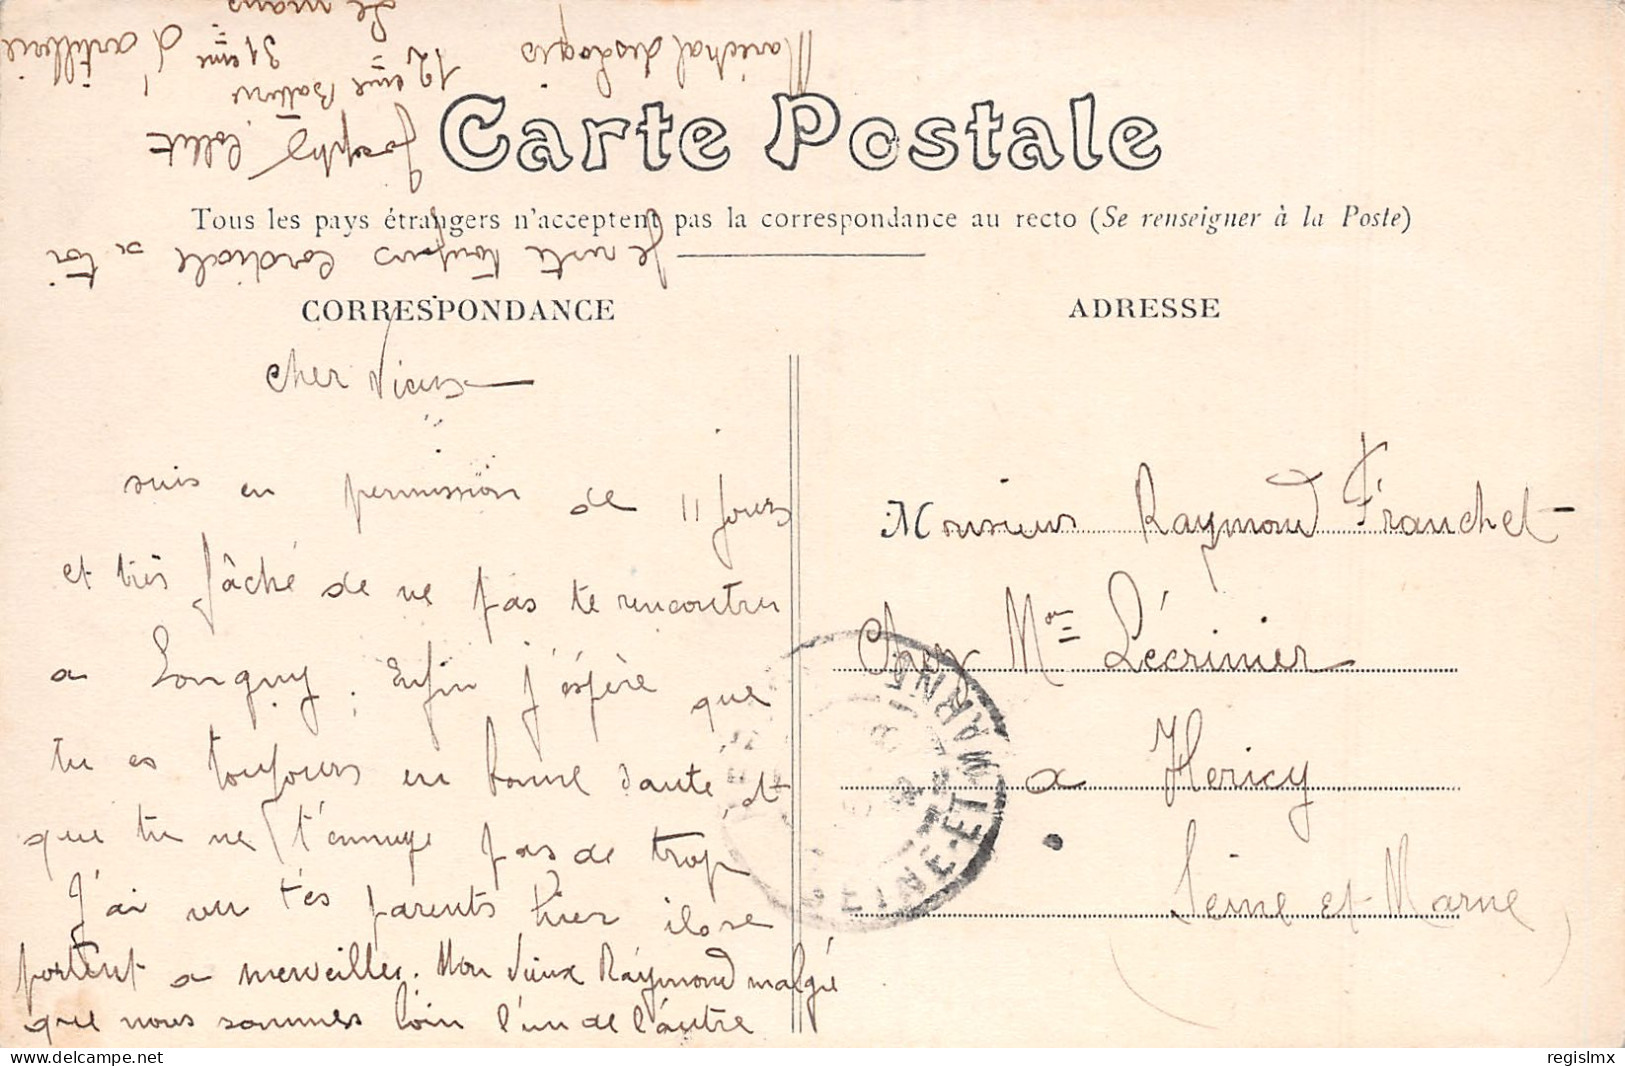 Carte Postale
Tous les pays étrangers n'acceptent pas la correspondance au recto (Se renseigner à la Poste)
CORRESPONDANCE
Cher Vieux
suis en permission de 11 jours
et très fâché de ne pas te rencontrer
a Longny. Enfin j'éspère que
tu es toujours en bonne santé, et
que tu ne t'ennuye pas de trop
J'ai vu tes parents hier ils se
portent a merveilles. Mon Vieux Raymond malgré
que nous sommes loin l'un de l'autre
Je reste toujours cordiale a toi
Joseph Collet
Maréchal des logis
12 eme Batterie
31 eme d'artillerie
Le mans
ADRESSE
Monsieur Raymond Franchet
Chez Mme Lécrinier
a Hericy
Seine et Marne
SEINE-ET-MARNE
delcampe.net
regislmx